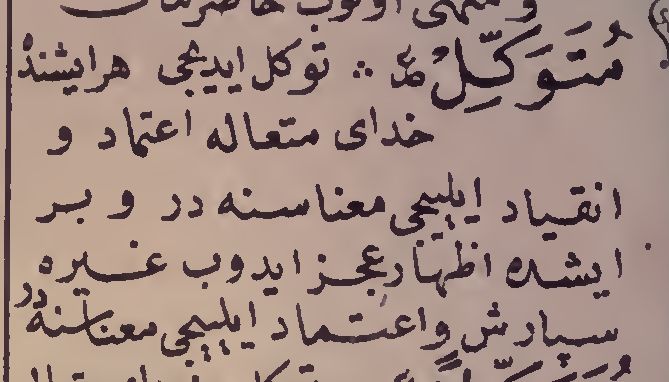 و منتهى اولوب حاضر
مُتَوَكِّلْ ع ∴ توكل ايديجى هر ايشنده
خداى متعاله اعتماد و
انقياد ايليجى معناسنه در و بر
ايشده اظهار عجز ايدوب غيره
سپارش و اعتماد ايليجى معناسنه در